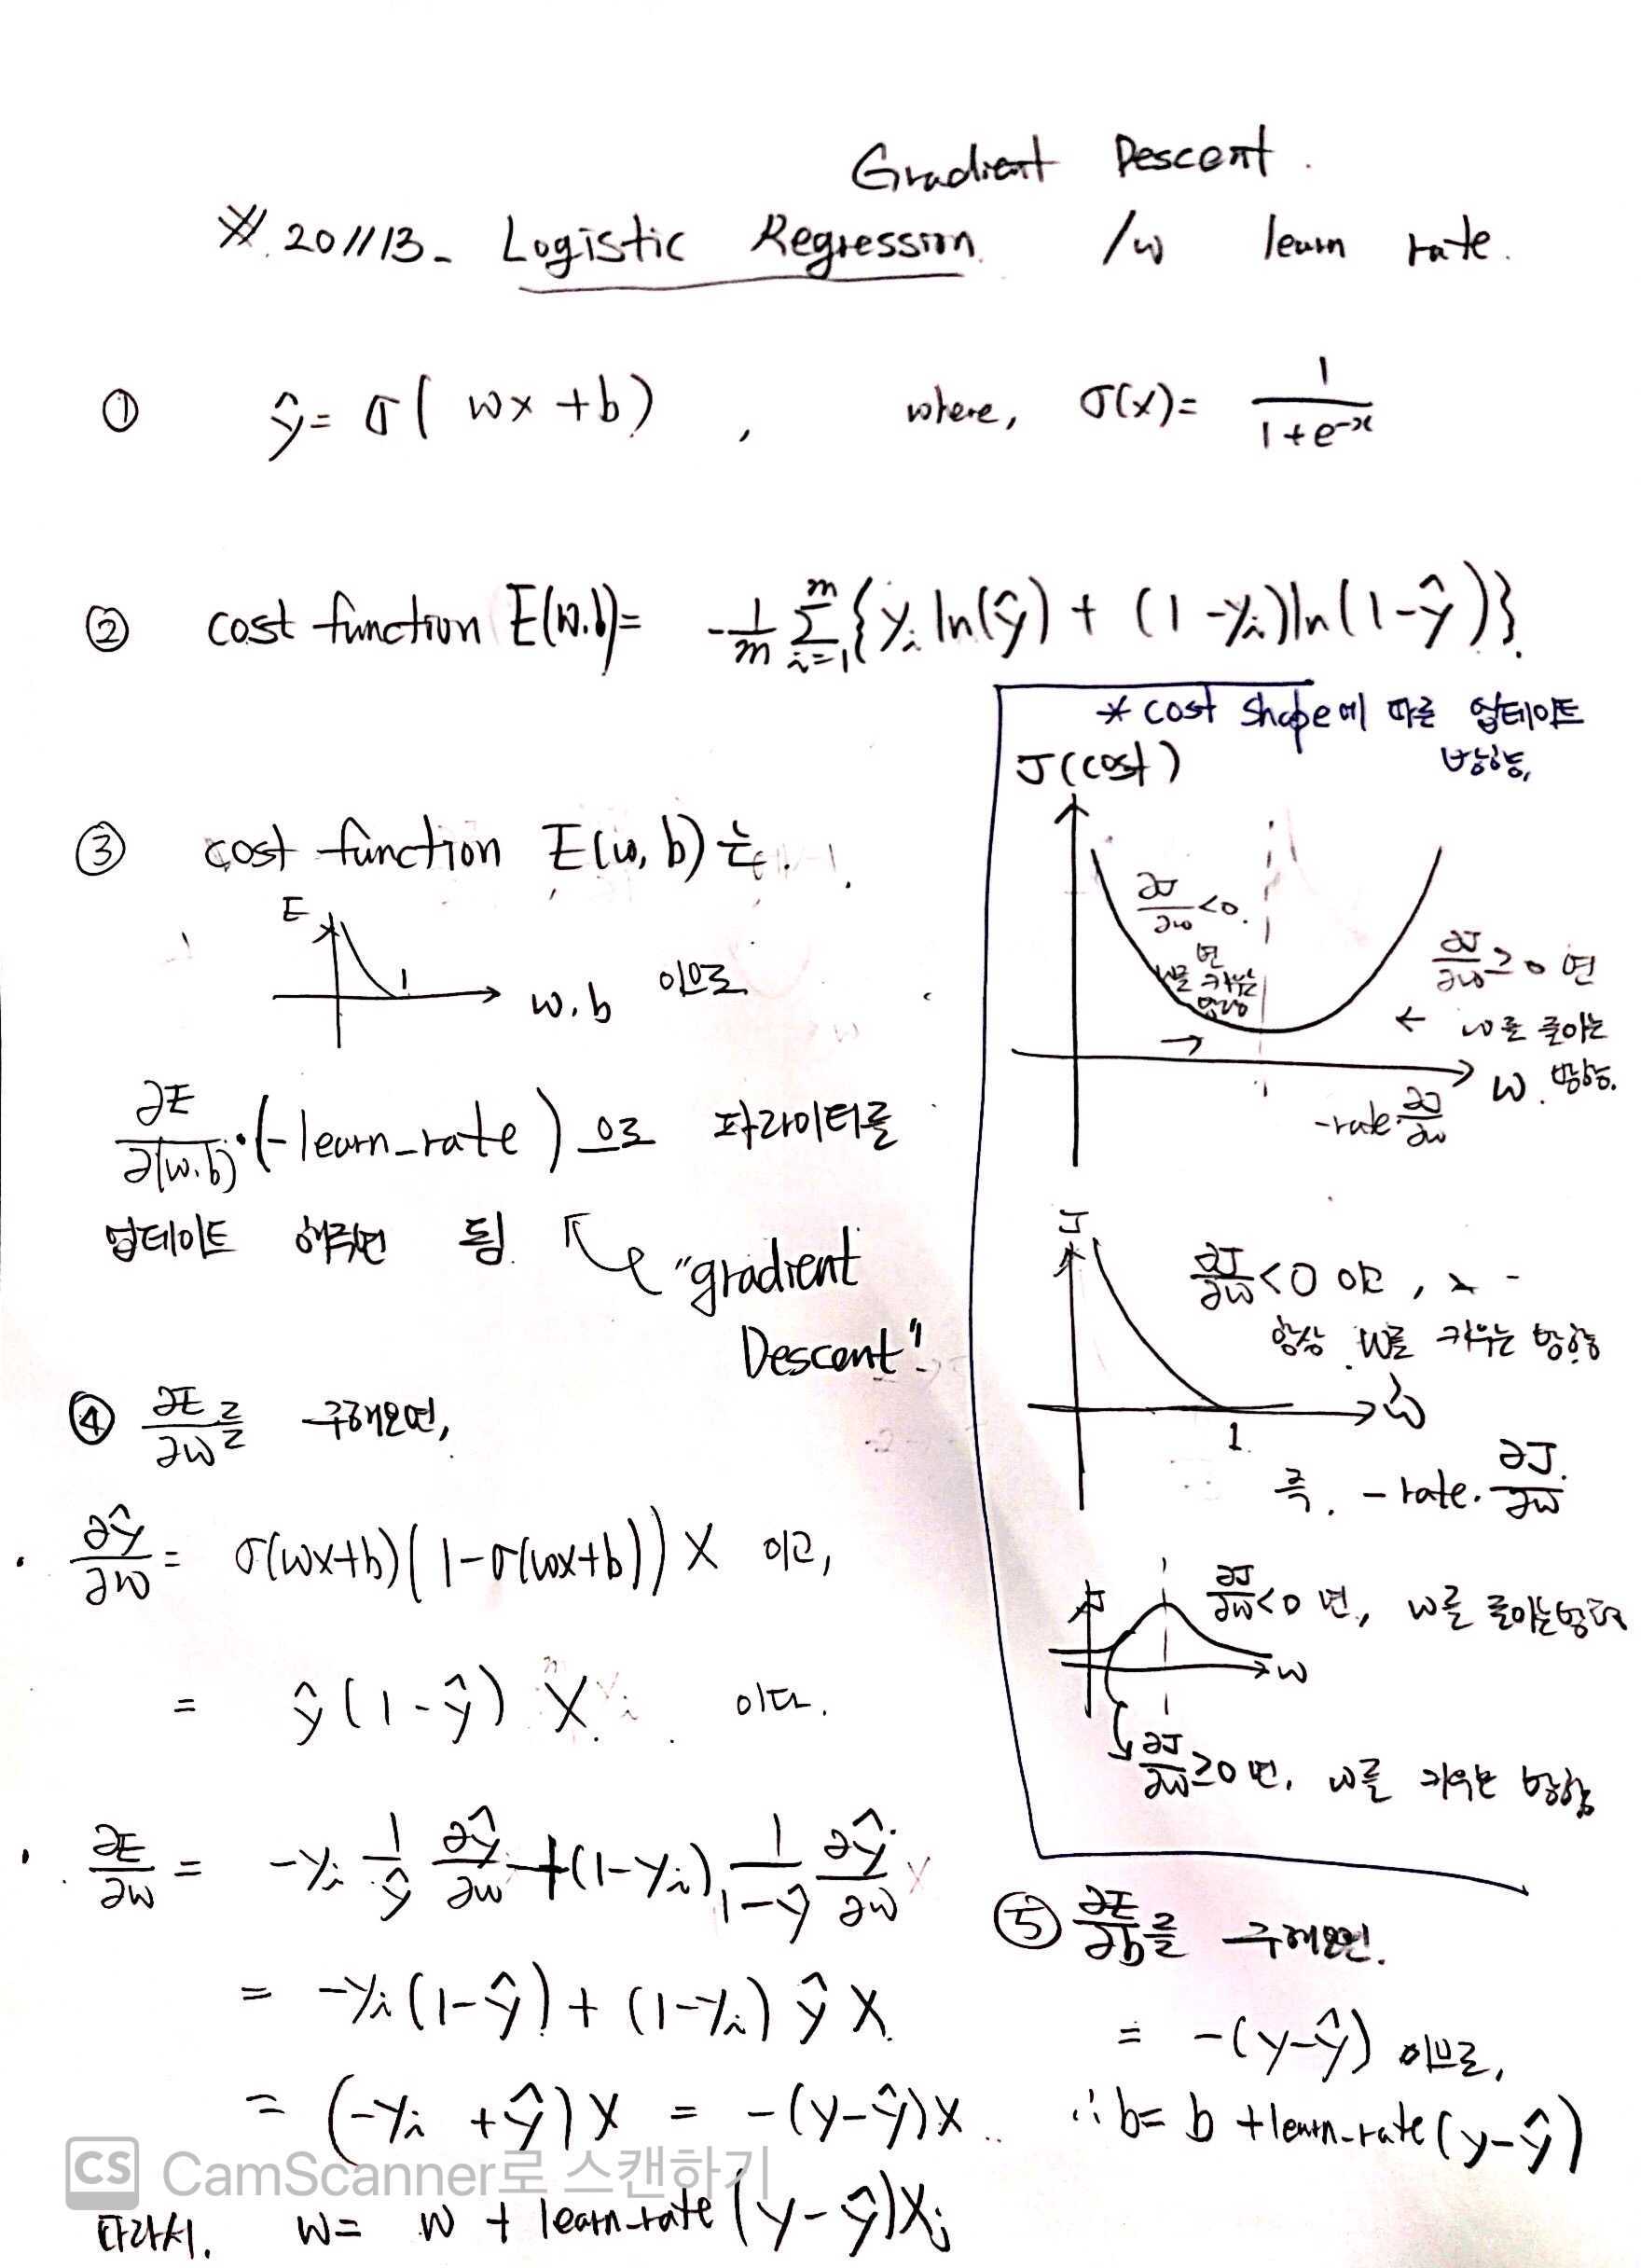 Gradient Descent.
※. 201113_ Logistic Regression. /w learn rate.
① ŷ = σ( wx + b ) , where, σ(x) = 1/(1+e^-x)
② cost function E(w.b) = -1/m Σ_{i=1}^{m} { y_i ln(ŷ) + (1-y_i)ln(1-ŷ)}.
③ cost function E(w, b)는.
E
1
w.b 이므로
∂E/∂(w.b)·(-learn_rate)으로 파라미터를
업데이트 해주면 됨.
"gradient
Descent"
④ ∂E/∂w를 구해보면,
· ∂ŷ/∂w = σ(wx+b)(1-σ(wx+b)) X 이고,
= ŷ(1-ŷ) X 이다.
· ∂E/∂w = -y_i 1/ŷ ∂ŷ/∂w +(1-y_i) 1/(1-ŷ) ∂ŷ/∂w
= -y_i(1-ŷ) + (1-y_i) ŷ X.
= (-y_i + ŷ) X = -(y-ŷ)X
따라서. w = w + learn_rate (y-ŷ)X_j
* cost shape에 따른 업데이트
방향.
J(cost)
∂J/∂w <0.
면
w를 키우는
방향
∂J/∂w ≥ 0 면
← w를 줄이는
방향.
→
w.
-rate·∂J/∂w
J
∂J/∂w < 0 이고,
항상 w를 키우는 방향
w
1.
즉. - rate. ∂J/∂w.
J
∂J/∂w < 0 면, w를 줄이는 방향
w
∂J/∂w ≥ 0 면, w를 키우는 방향
⑤ ∂E/∂b를 구해보면.
= -(y-ŷ) 이므로,
∴ b = b + learn_rate (y-ŷ)
CS CamScanner로 스캔하기